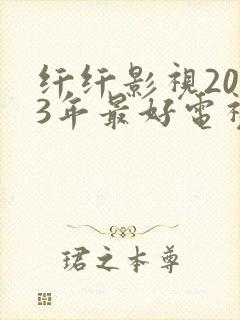 纤纤影視20
3年最好電視
珺之本尊